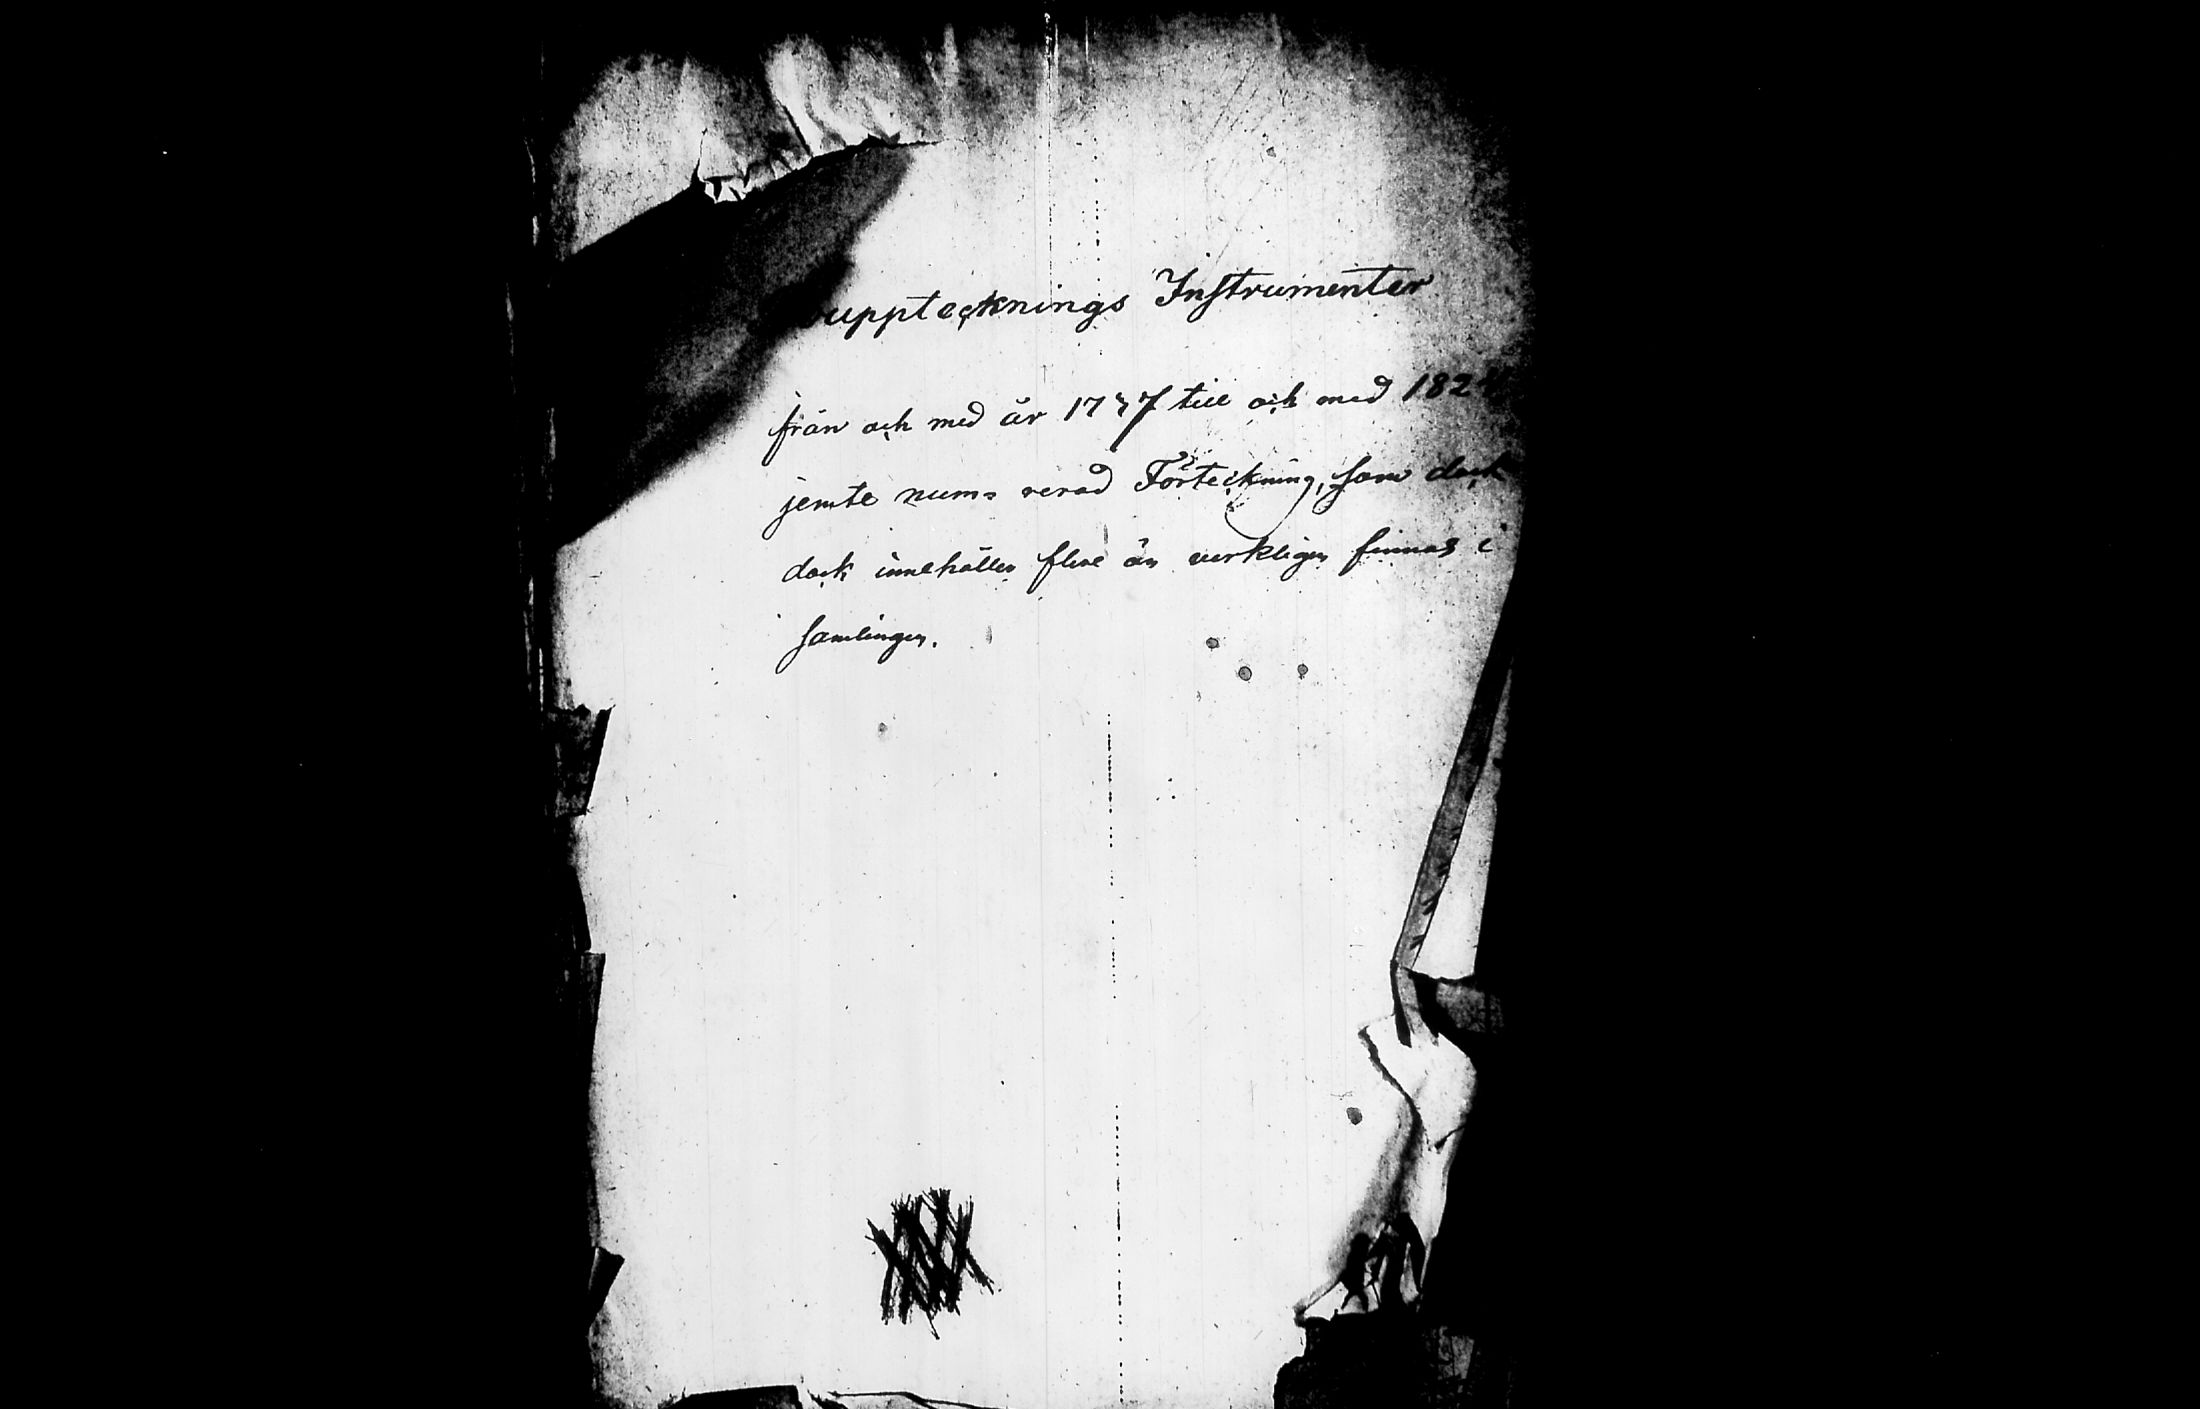 upptecknings Instrumenter
från och med år 1737 till och med 182
jemte numrerad Förteckning, som dock
dock innehåller flere än verkligen finnas i
samlingen.